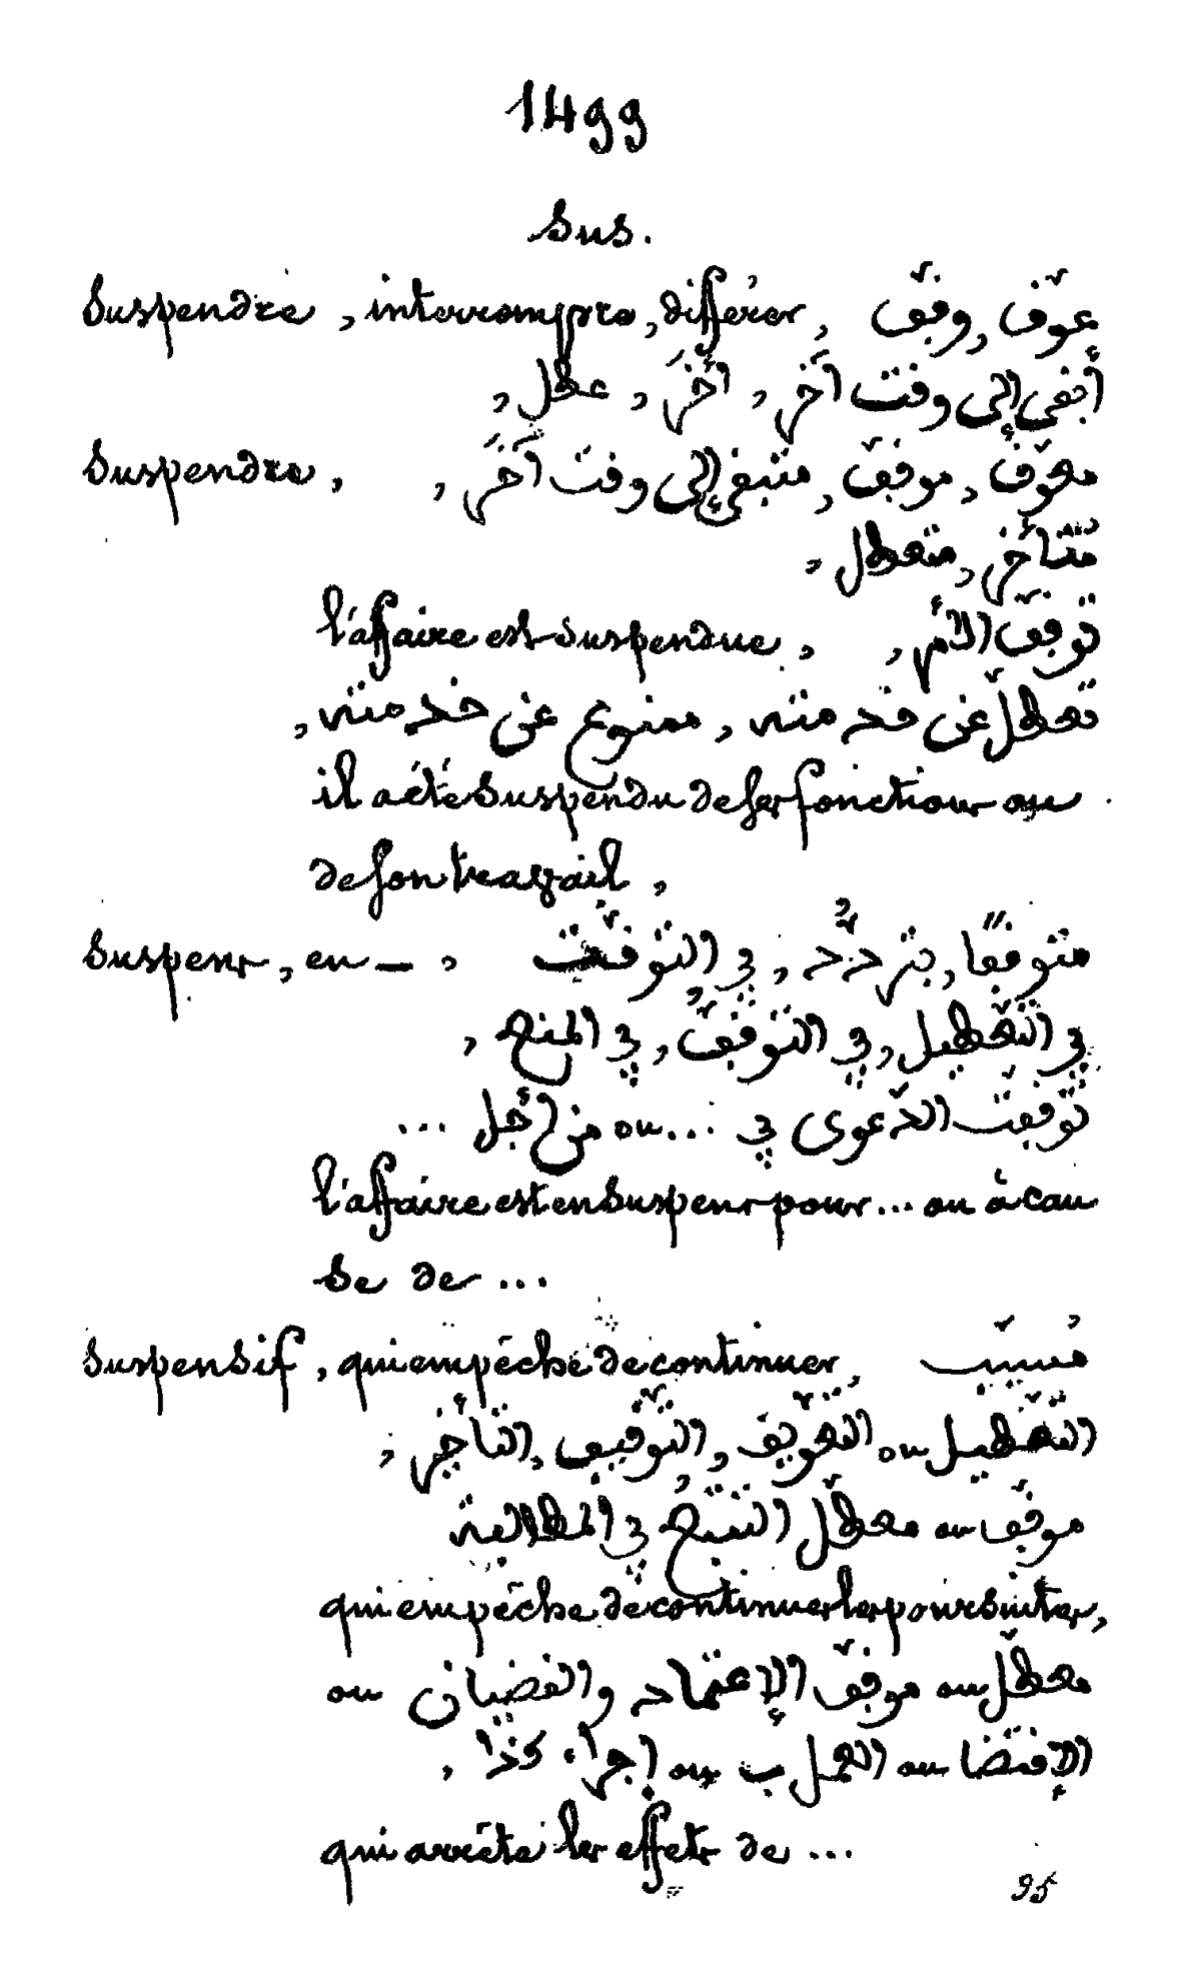 1499
Sus.
Suspendre, interrompre, différer, عوّف, وقّف
أبقى إلى وقت آخَر, أخّرَ, عطل,
Suspendre, معوّف, موقّف, متبقى إلى وقت آخَر,
متتأخر, متعطل,
l'affaire est suspendue, توقّف الأمر,
تعطّل عن خدمته, ممنوع عن خدمته,
il a été suspendu de ses fonctions ou
de son travail,
Suspens, en –, متوقّفًا, بتردّد, في التوقّف
في التعطيل, في التوقّف, في المنع,
توقّفت الدّعوى في ... ou من أجل ...
l'affaire est en suspens pour ... ou à cau
se de ...
Suspensif, qui empêche de continuer, مُسبّب
التّعطيل ou التعويف, التّوقيف, التأخير,
موقّف ou معطّل التّتبّع في المطالبة
qui empêche de continuer les poursuites,
معطّل ou موقّف الإعتماد والقضيان ou
الإقتضا ou العمل ب ou إجراء كذا,
qui arrête les effets de ...
95